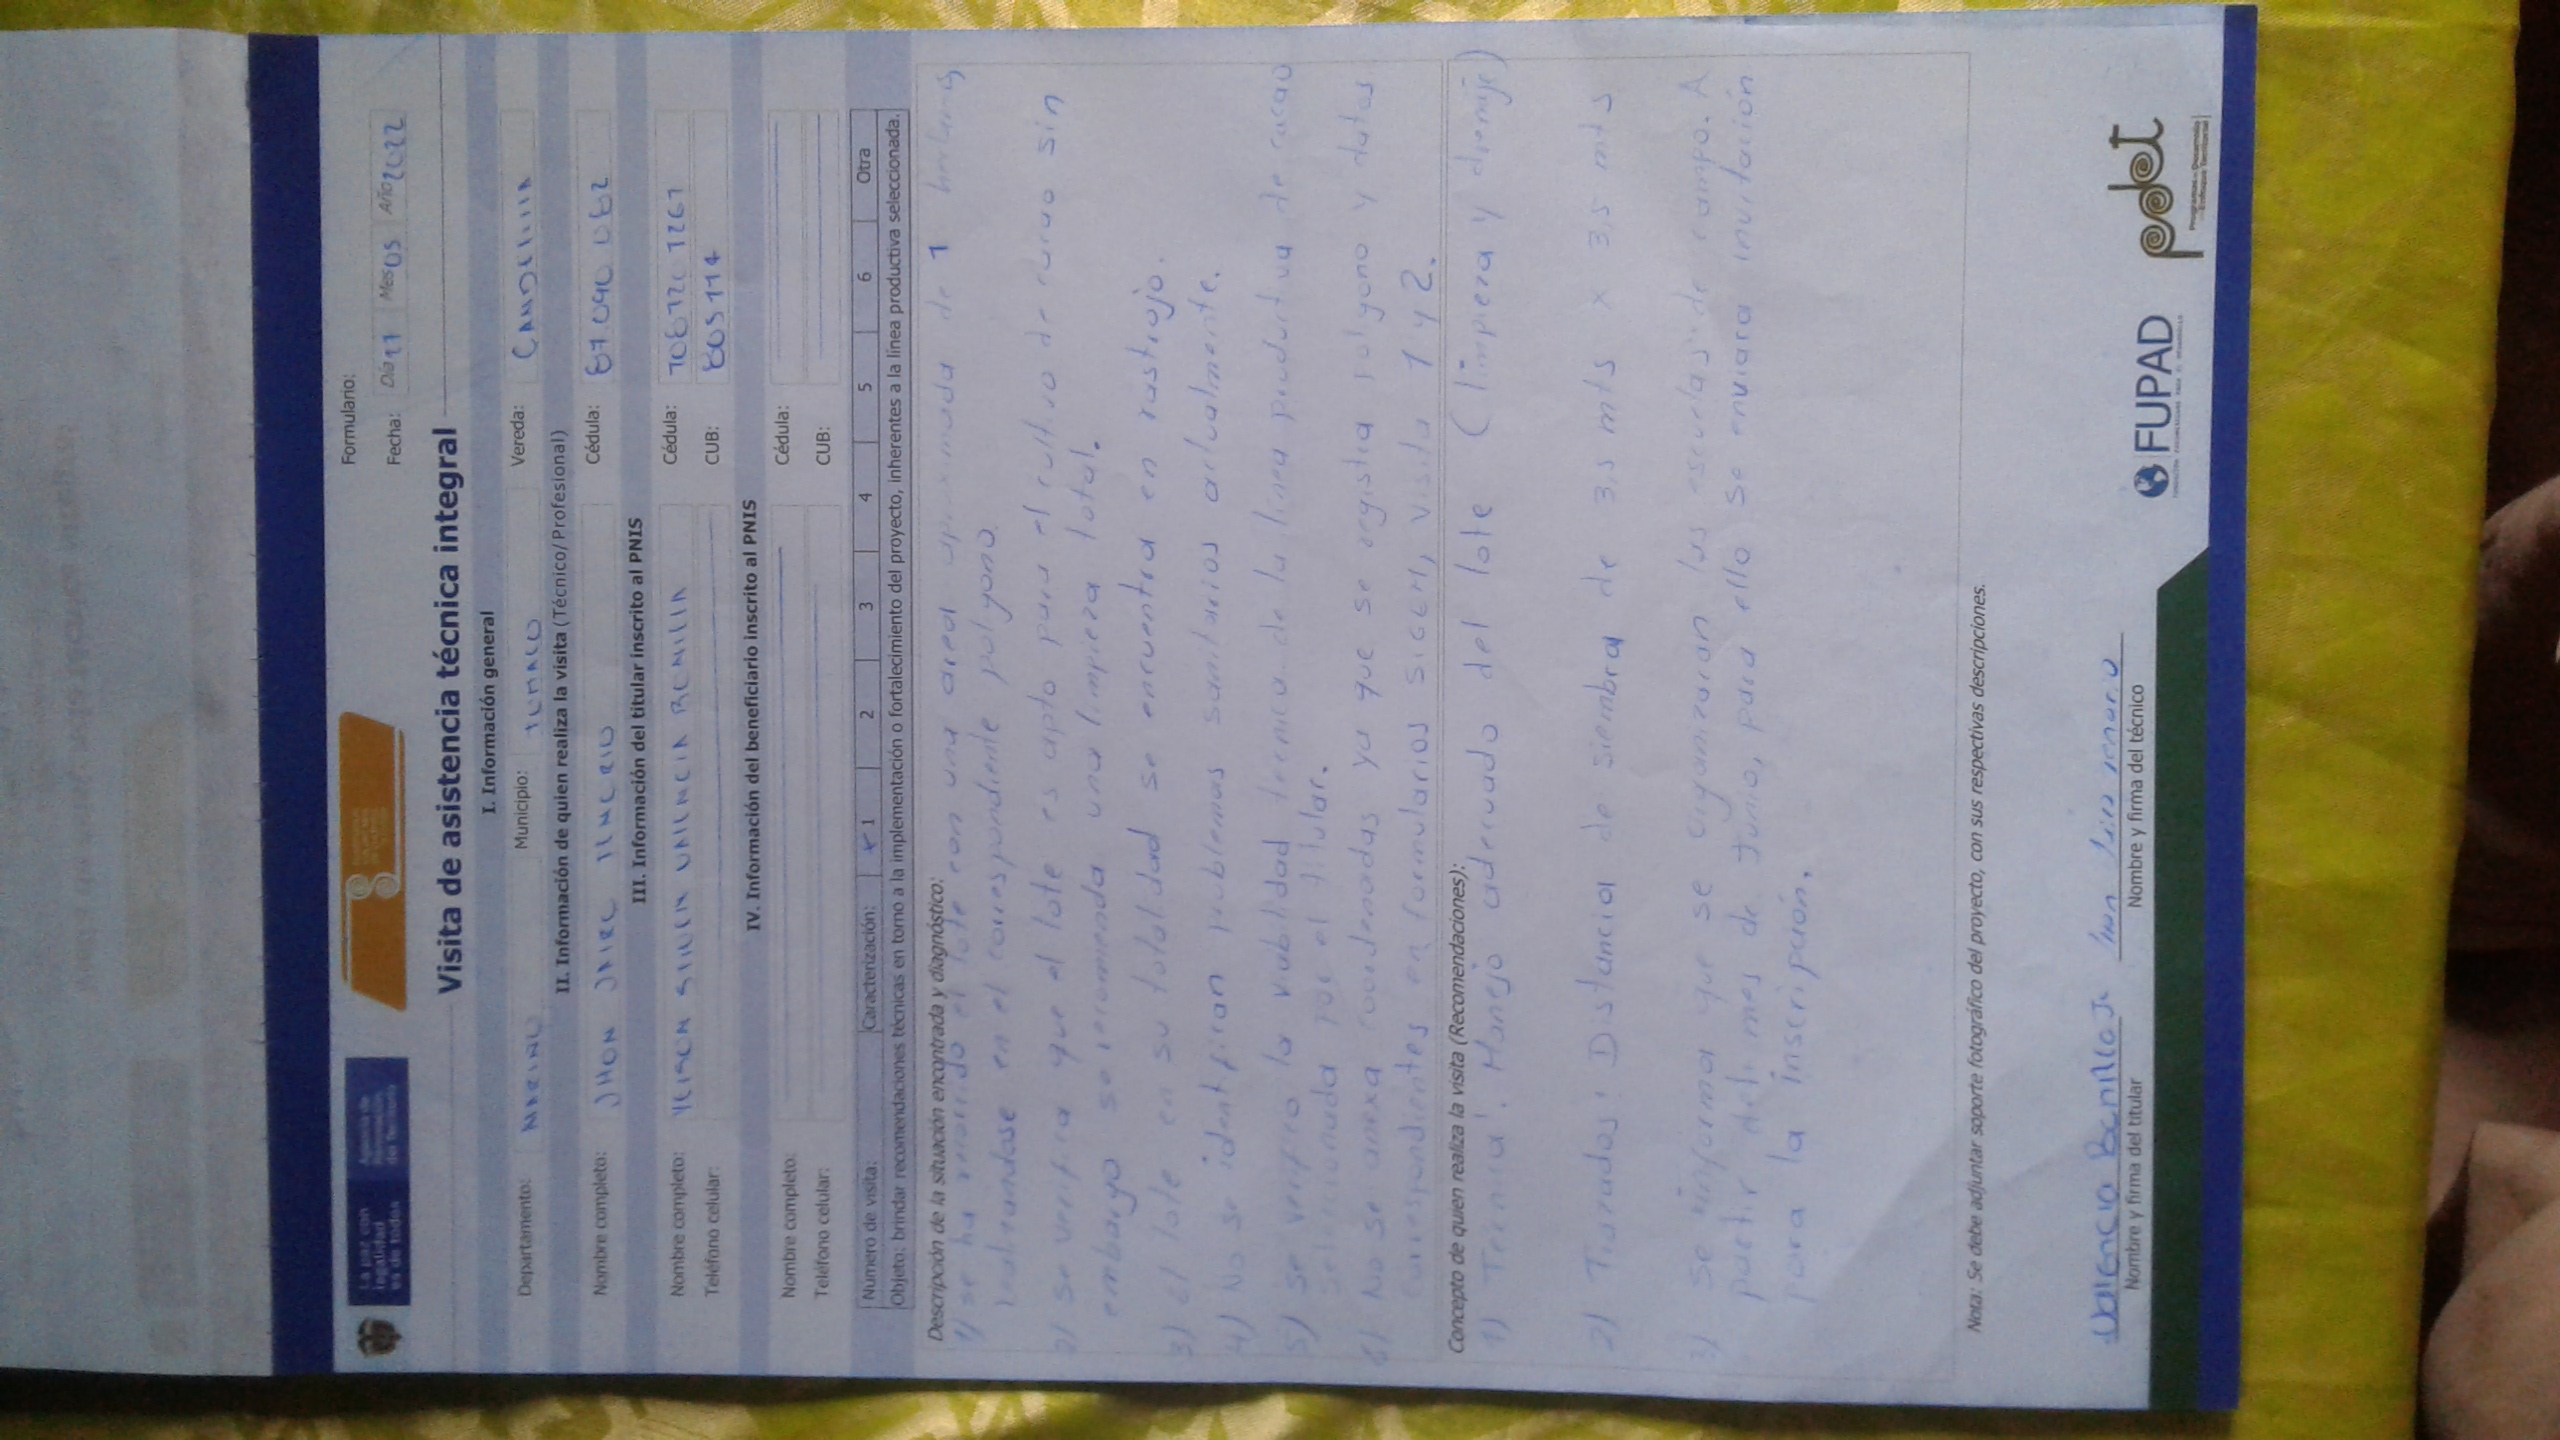 La paz con
legalidad
es de todos
Agencia de
Renovación
del Territorio
Formulario:
Fecha: Día 11 Mes 05 Año 2022
Visita de asistencia técnica integral
I. Información general
Departamento: NARIÑO Municipio: TUMACO Vereda: CANDELILLA
II. Información de quien realiza la visita (Técnico/Profesional)
Nombre completo: JHON JAIRO Cédula: 87.040.082
III. Información del titular inscrito al PNIS
Nombre completo: VALENCIA BONILLA Cédula:
Teléfono celular: CUB: 805114
IV. Información del beneficiario inscrito al PNIS
Nombre completo: Cédula:
Teléfono celular: CUB:
Numero de visita: Caracterización: x 1 2 3 4 5 6 Otra
Objeto: brindar recomendaciones técnicas en torno a la implementación o fortalecimiento del proyecto, inherentes a la línea productiva seleccionada.
Descripción de la situación encontrada y diagnóstico:
1) se ha recorrido el lote con una area aproximada de 1
realizandose en el correspondiente polygono.
2) se verifica que el lote es apto para el cultivo de cacao sin
embargo se recomienda una limpieza total.
3) el lote en su totalidad se encuentra en rastrojo.
4) No se identifican problemas sanitarios actualmente.
5) se verifico la viabilidad tecnica de la linea productiva de cacao
seleccionada por el titular.
6) No se anexa coordenadas ya que se registra polygono y datos
correspondientes en formularios SIGGH, visita 1 y 2.
Concepto de quien realiza la visita (Recomendaciones):
1) Tecnica: Manejo adecuado del lote (limpieza y drenaje)
2) Trazados: Distancia de siembra de 3,5 mts x 3,5 mts
3) Se informa que se organizaran las escuelas de campo. A
partir del mes de Junio, para ello se enviara invitación
para la inscripción.
Nota: Se debe adjuntar soporte fotográfico del proyecto, con sus respectivas descripciones.
Valencia Bonilla
Nombre y firma del titular
Nombre y firma del técnico
FUPAD
pdet
Programas de Desarrollo
con Enfoque Territorial